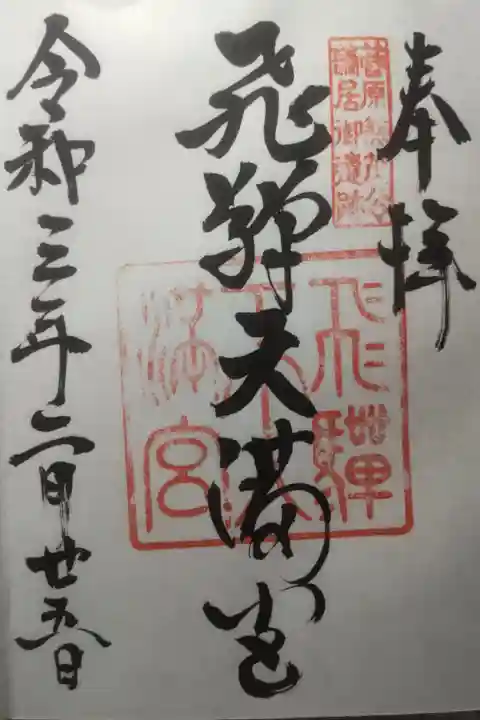 奉拝
菅原兼茂公
謫居御遺跡
飛騨天満宮
飛騨
天満宮
令和三年二月廿五日